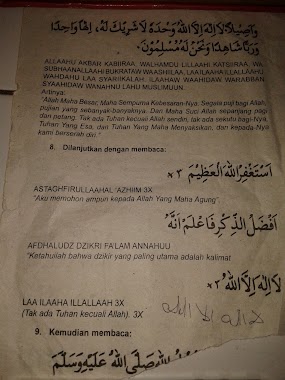 وَاَصِيْلًا لَآ اِلٰهَ اِلَّا اللهُ وَحْدَهُ لَا شَرِيْكَ لَهُ، اِلٰهًا وَاحِدًا
وَرَبًّا شَاهِدًا وَنَحْنُ لَهُ مُسْلِمُوْنَ.
ALLAAHU AKBAR KABIIRAA, WALHAMDU LILLAAHI KATSIIRAA, WA
SUBHAANALLAAHI BUKRATAW WAASHIILAA. LAA ILAAHA ILLALLAAHU
WAHDAHU LAA SYARIIKALAH. ILAAHAW WAAHIDAW WARABBAN
SYAAHIDAW WANAHNU LAHU MUSLIMUUN.
Artinya:
"Allah Maha Besar, Maha Sempurna Kebesaran-Nya. Segala puji bagi Allah,
pujian yang sebanyak-banyaknya. Dan Maha Suci Allah sepanjang pagi
dan petang. Tak Tuhan kecuali Allah sendiri, tak ada sekutu bagi-Nya.
Tuhan Yang Esa, dan Tuhan Yang Maha Menyaksikan, dan kepada-Nya
kami berserah diri."
8. Dilanjutkan dengan membaca:
اَسْتَغْفِرُ اللهَ الْعَظِيْمَ ×٣
ASTAGHFIRULLAAHAL 'AZHIIM 3X
"Aku memohon ampun kepada Allah Yang Maha Agung"
اَفْضَلُ الذِّكْرِ فَاعْلَمْ اَنَّهُ
AFDHALUDZ DZIKRI FA'LAM ANNAHUU
"Ketahuilah bahwa dzikir yang paling utama adalah kalimat
لَآ اِلٰهَ اِلَّا اللهُ ×٣
LAA ILAAHA ILLALLAAH 3X
(Tak ada Tuhan kecuali Allah). 3X
لا اله الا الله
9. Kemudian membaca:
اللهُ صَلَّى اللهُ عَلَيْهِ وَسَلَّمَ